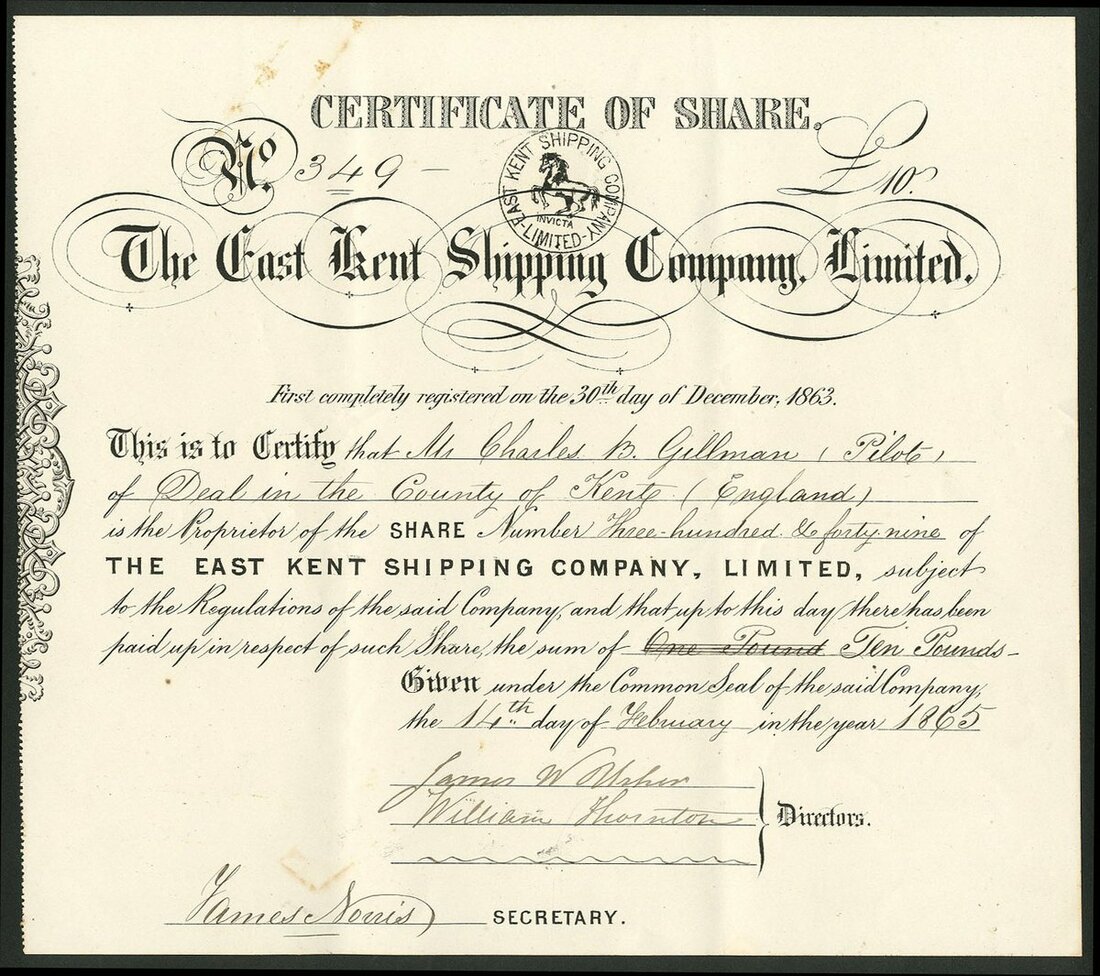 CERTIFICATE OF SHARE.
No. 349 -
EAST KENT SHIPPING COMPANY
INVICTA
-LIMITED-
£10.
The East Kent Shipping Company, Limited.
First completely registered on the 30th day of December, 1863.
This is to Certify that Mr Charles B. Gillman (Pilot)
of Deal in the County of Kent (England)
is the Proprietor of the SHARE Number Three hundred & forty nine of
THE EAST KENT SHIPPING COMPANY, LIMITED, subject
to the Regulations of the said Company, and that up to this day there has been
paid up in respect of such Share, the sum of One Pound Ten Pounds-
Given under the Common Seal of the said Company,
the 14th day of February in the year 1865
James W
William Thornton
Directors.
James Norris SECRETARY.